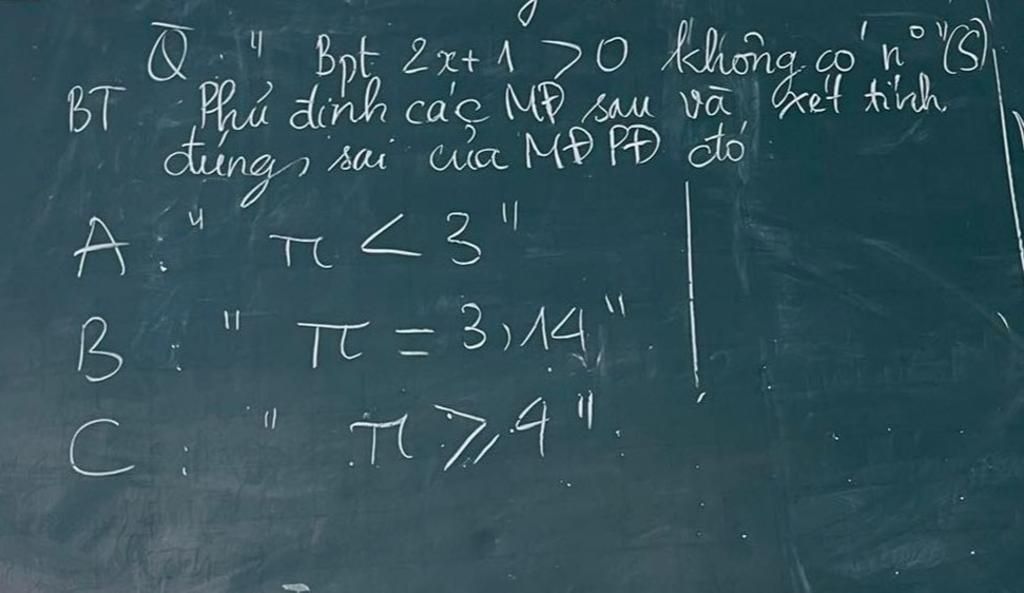 Q̅ : " Bpt 2x+1 >0 không có n⁰"(S)
BT Phủ định các MĐ sau và xét tính
đúng, sai của MĐPĐ đó
A : " π < 3 "
B : " π = 3,14 "
C : " π ⩾ 4 "